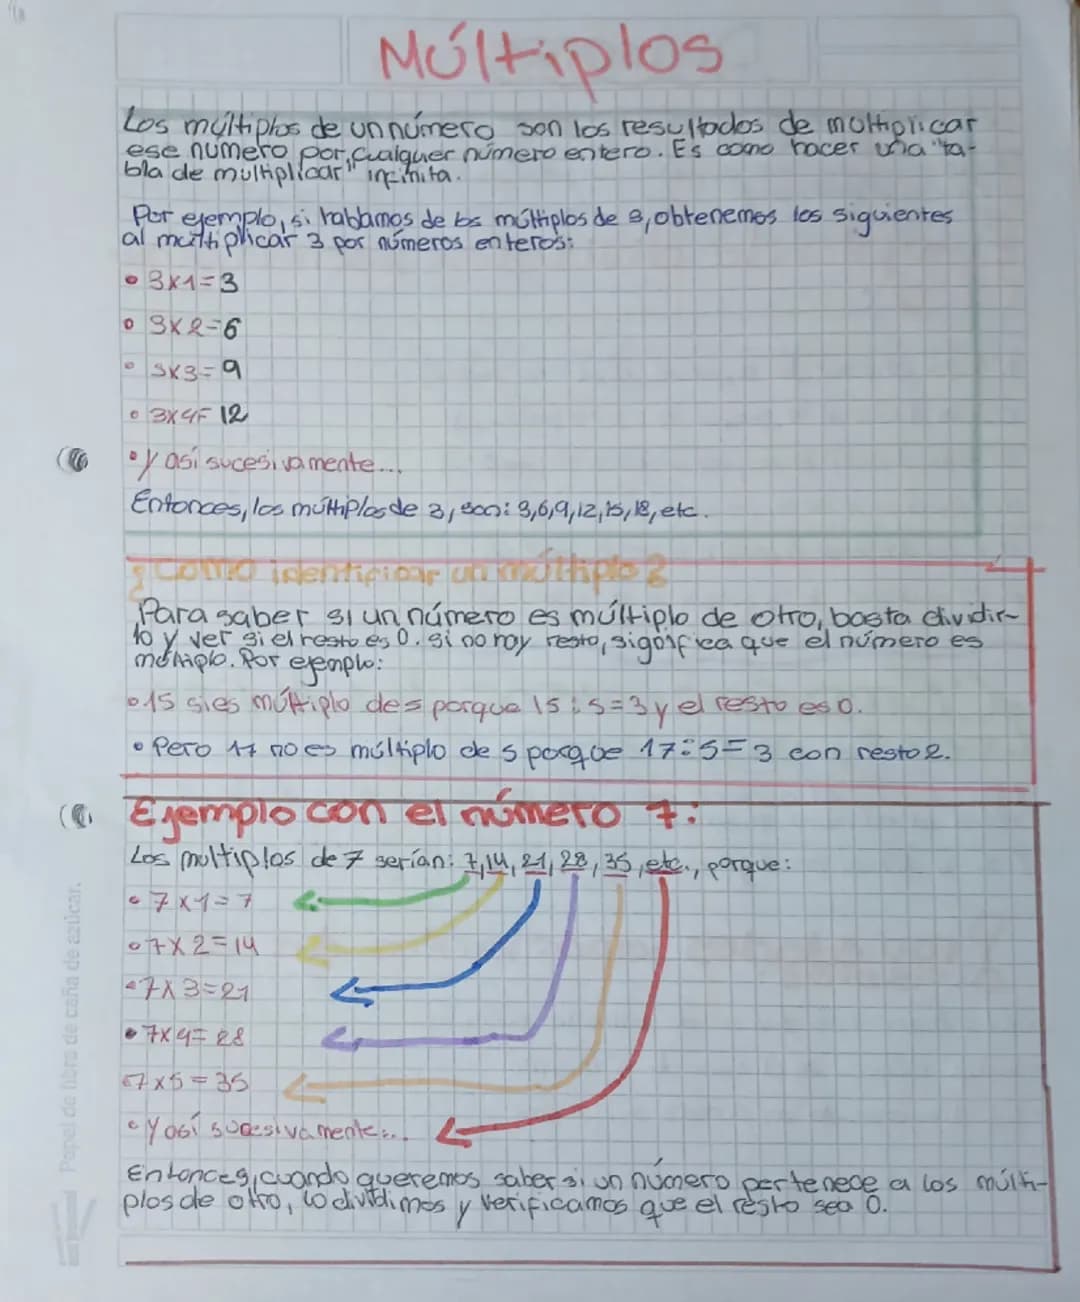 Múltiplos
Los múltiplos de un número son los resultados de multiplicar
ese numero por, cualquer número entero. Es como hacer una "ta-
bla de multiplicar" infinita.
Por ejemplo, si hablamos de los múltiplos de 3, obtenemos los siguientes
al multiplicar 3 por números enteros:
• 3x1=3
• 3x2=6
• 3x3=9
• 3x4= 12
• y así sucesivamente...
Entonces, los múltiplos de 3, son: 3,6,9,12,15,18, etc.
¿Como identificar un múltiplo?
Para saber si un número es múltiplo de otro, basta dividir-
lo y ver si el resto es 0. si no hay resto, significa que el número es
múltiplo. Por ejemplo:
• 15 si es múltiplo de 5 porque 15:5=3 y el resto es 0.
• Pero 17 no es múltiplo de 5 porque 17:5=3 con resto 2.
Ejemplo con el número 7:
Los multiplos de 7 serían: 7,14, 21, 28, 35, etc., porque:
• 7x1=7
• 7x2=14
• 7x3=21
• 7x4=28
• 7x5=35
• Y así sucesivamente...
Entonces, cuando queremos saber si un número pertenece a los múlti-
plos de otro, lo dividimos y verificamos que el resto sea 0.
Papel de fibra de caña de azúcar.